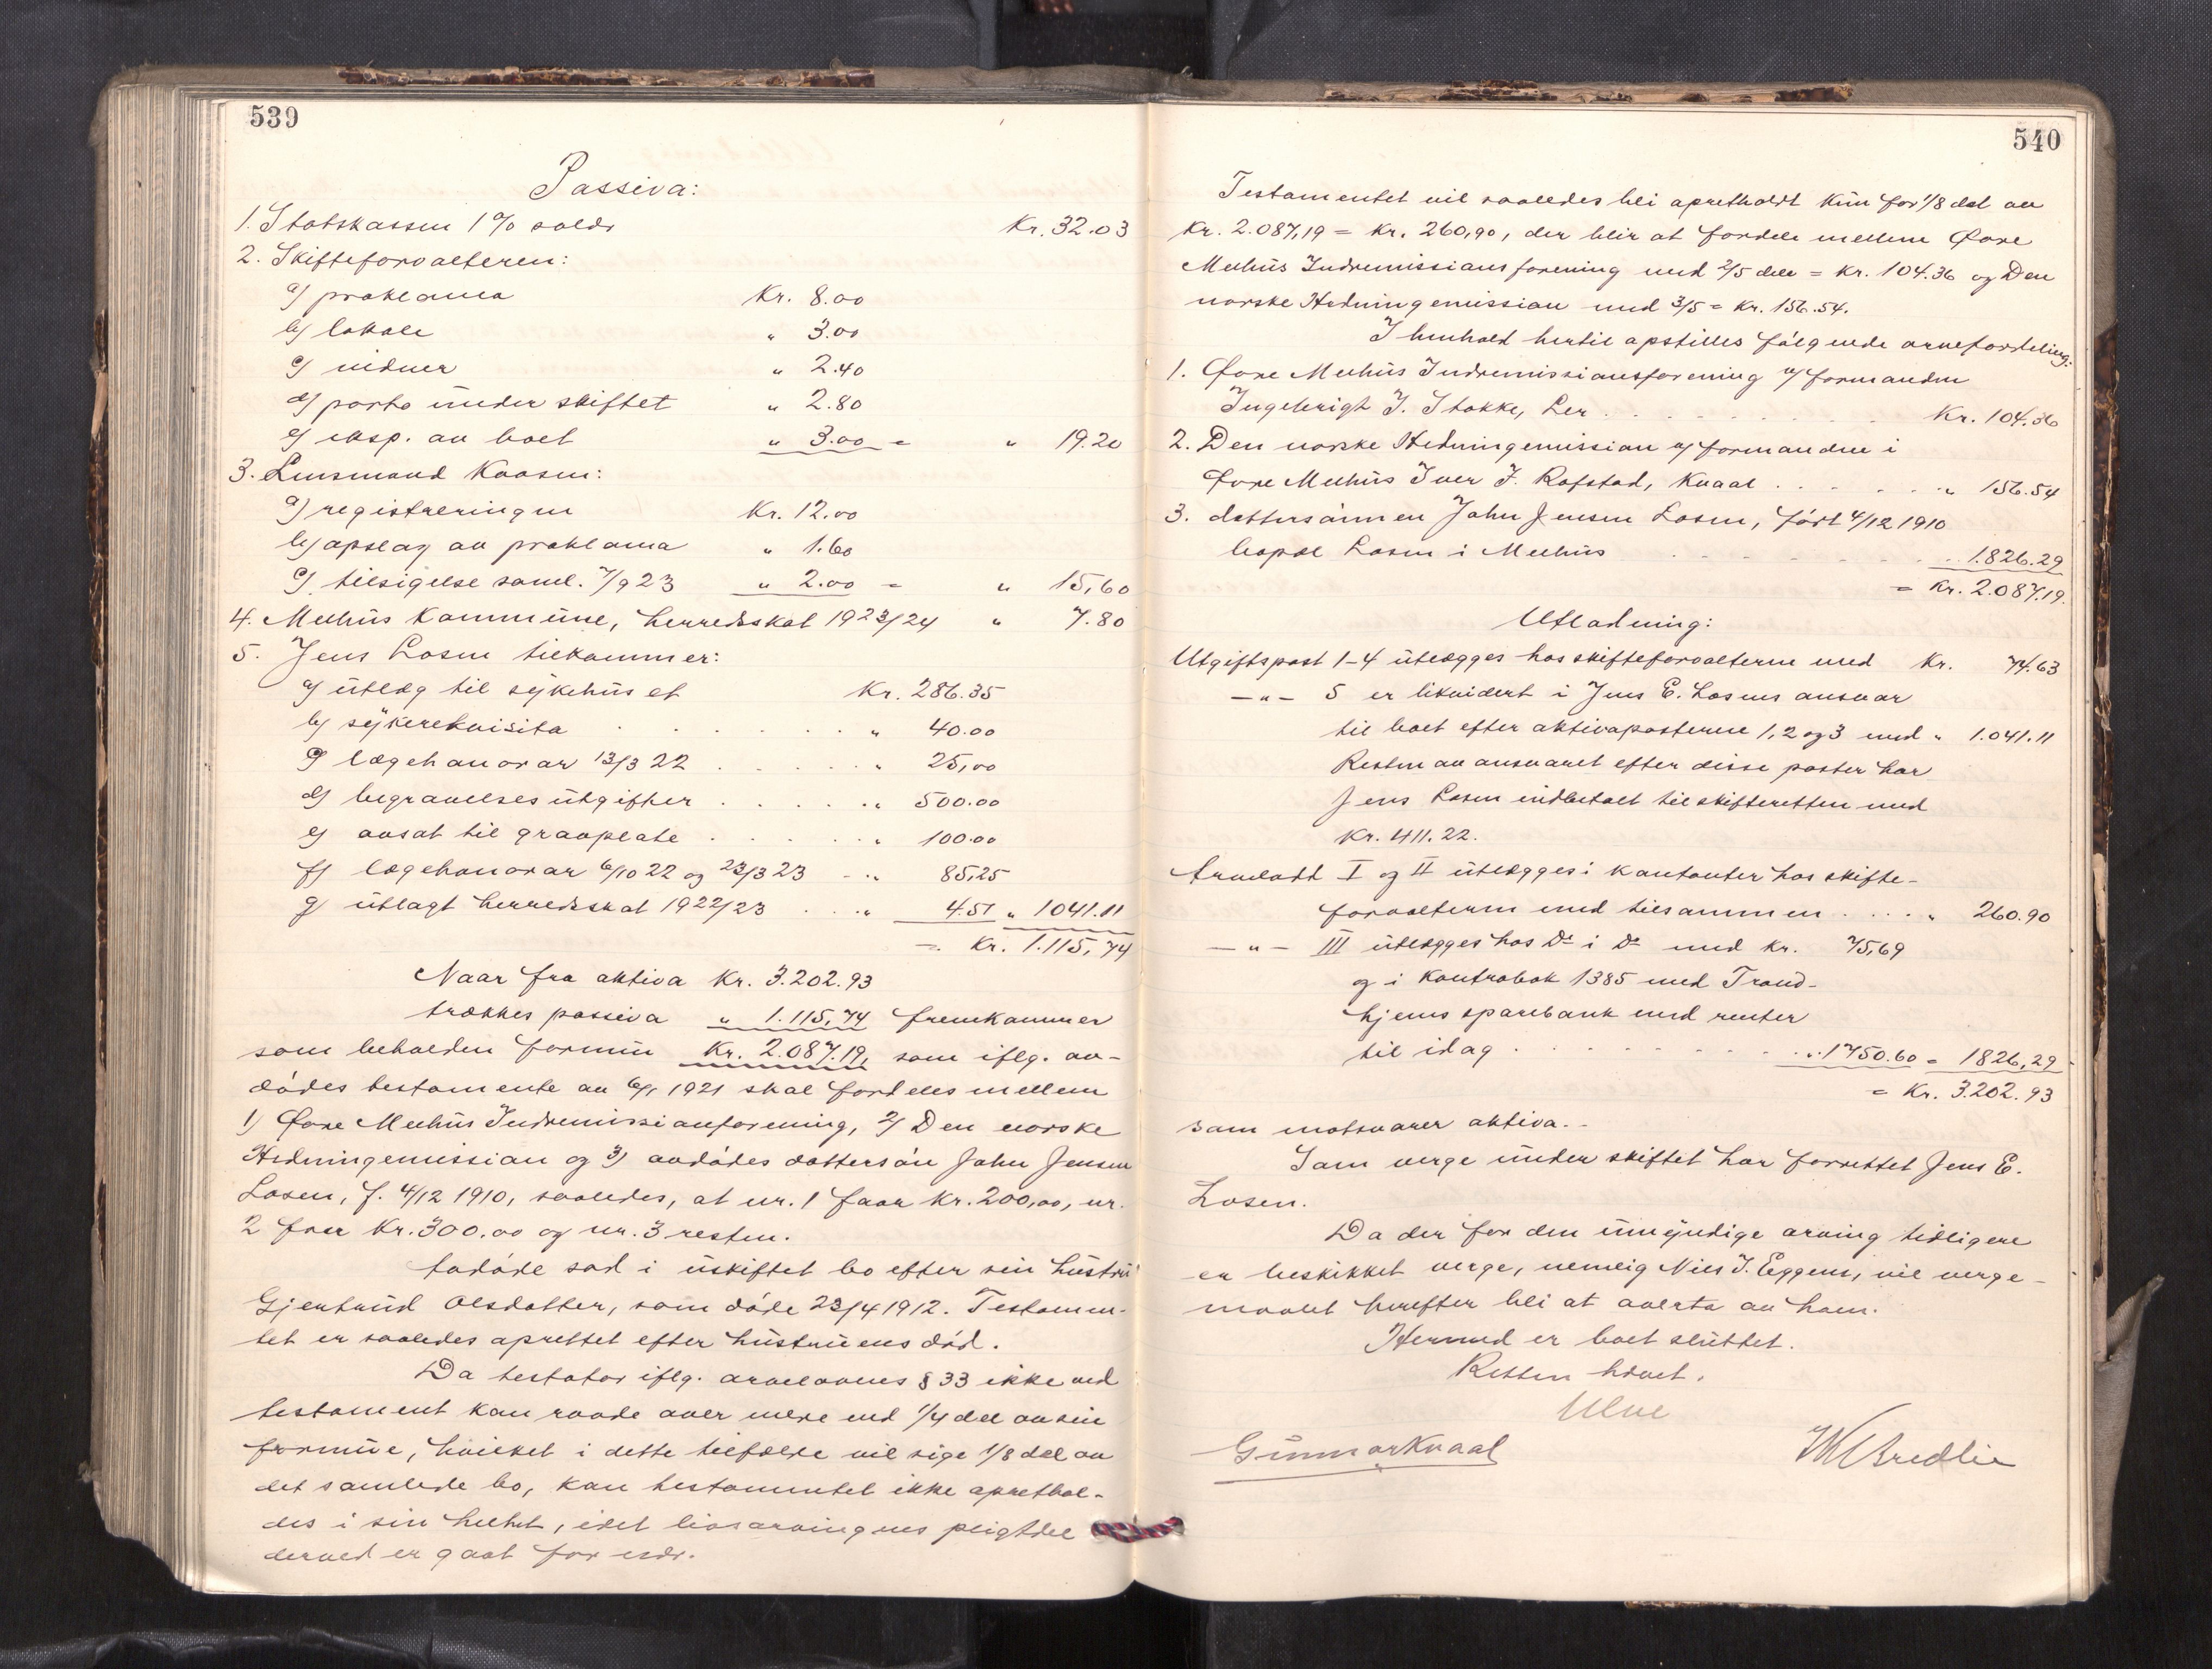 539
Passiva:
1. Statskassen 1% avldr. Kr. 32.03
2. Skifteforvalteren:
a) proklama Kr. 8.00
b) lokale " 3.00
c) vidner " 2.40
d) porto under skiftet " 2.80
e) eksp. av boet " 3.00 = " 19.20
3. Lensmand Kaasen:
a) registreringen Kr. 12.00
b) opslag av proklama " 1.60
c) tilsigelse saml. 7/9 23 " 2.00 = " 15,60
4. Melhus kommune, herredsskat 1923/24 " 7.80
5. Jens Losen tilkommer:
a) utlæg til sykehuset Kr. 286.35
b) sykerekvisita . . . . . . " 40.00
c) lægehonorar 13/3 22 . . . . " 25,00
d) begravelsesutgifter . . . . . " 500.00
e) avsat til gravplate . . . . . " 100.00
f) lægehonorar 6/10 22 og 23/3 23 - " 85,25
g) utlagt herredsskat 1922/23 . . " 4.51 " 1041.11
= Kr. 1.115,74
Naar fra aktiva Kr. 3.202.93
trækkes passiva " 1.115,74 fremkommer
som beholden formue Kr. 2.087.19, som iflg. av-
dødes testamente av 6/1 1921 skal fordeles mellem
1) Øvre Melhus Indremissionsforening, 2) Den norske
Hedningemission og 3) avdødes dattersøn John Jensen
Losen, f. 4/12 1910, saaledes, at nr. 1 faar Kr. 200,00, nr.
2 faar Kr. 300.00 og nr. 3 resten.
Avdøde sad i uskiftet bo efter sin hustru
Gjertrud Olsdatter, som døde 23/4 1912. Testamen-
tet er saaledes oprettet efter hustruens død.
Da testator iflg. arvelovens § 33 ikke ved
testament kan raade over mere end 1/4 del av sin
formue, hvilket i dette tilfælde vil sige 1/8 del av
det samlede bo, kan testamentet ikke oprethol-
des i sin helhet, idet livsarvingens pligtdel
derved er gaat for nær.
540
Testamentet vil saaledes bli opretholdt kun for 1/8 del av
Kr. 2.087,19 = Kr. 260,90, der blir at fordele mellem Øvre
Melhus Indremissionsforening med 2/5 dele = Kr. 104.36 og Den
norske Hedningemission med 3/5 = Kr. 156.54.
I henhold hertil opstilles følgende arvefordeling:
1. Øvre Melhus Indremissionsforening v/ formanden
Ingebrigt J. Stokke, Ler . . . . . . . Kr. 104.36
2. Den norske Hedningemission v/ formanden i
Øvre Melhus Iver J. Rofstad, Kvaal . . . . . " 156.54
3. dattersønnen John Jensen Losen, født 4/12 1910
bopæl Losen i Melhus . . . . . . . 1.826.29
= Kr. 2.087.19.
Utlodning:
Utgiftspost 1-4 utlægges hos skifteforvalteren med Kr. 74.63
-"- 5 er likvidert i Jens E. Losens ansvar
til boet efter aktivaposterne 1, 2 og 3 med " 1.041.11
Resten av ansvaret efter disse poster har
Jens Losen indbetalt til skifteretten med
Kr. 411.22.
Arvelodd I og II utlægges i kontanter hos skifte-
forvalteren med tilsammen . . . . " 260.90
-"- III utlægges hos Do i Do med Kr. 75,69
og i kontrabok 1385 med Trond-
hjems sparebank med renter
til idag . . . . . . . . . " 1750.60 = 1826,29
= Kr. 3.202.93
som motsvarer aktiva.-
Som verge under skiftet har forrettet Jens E.
Losen.
Da der for den umyndige arving tidligere
er beskikket verge, nemlig Nils J. Eggen, vil verge-
maalet herefter bli at ivareta av ham.
Hermed er boet sluttet.
Retten hævet.
Ulve
Gunnar Kvaal